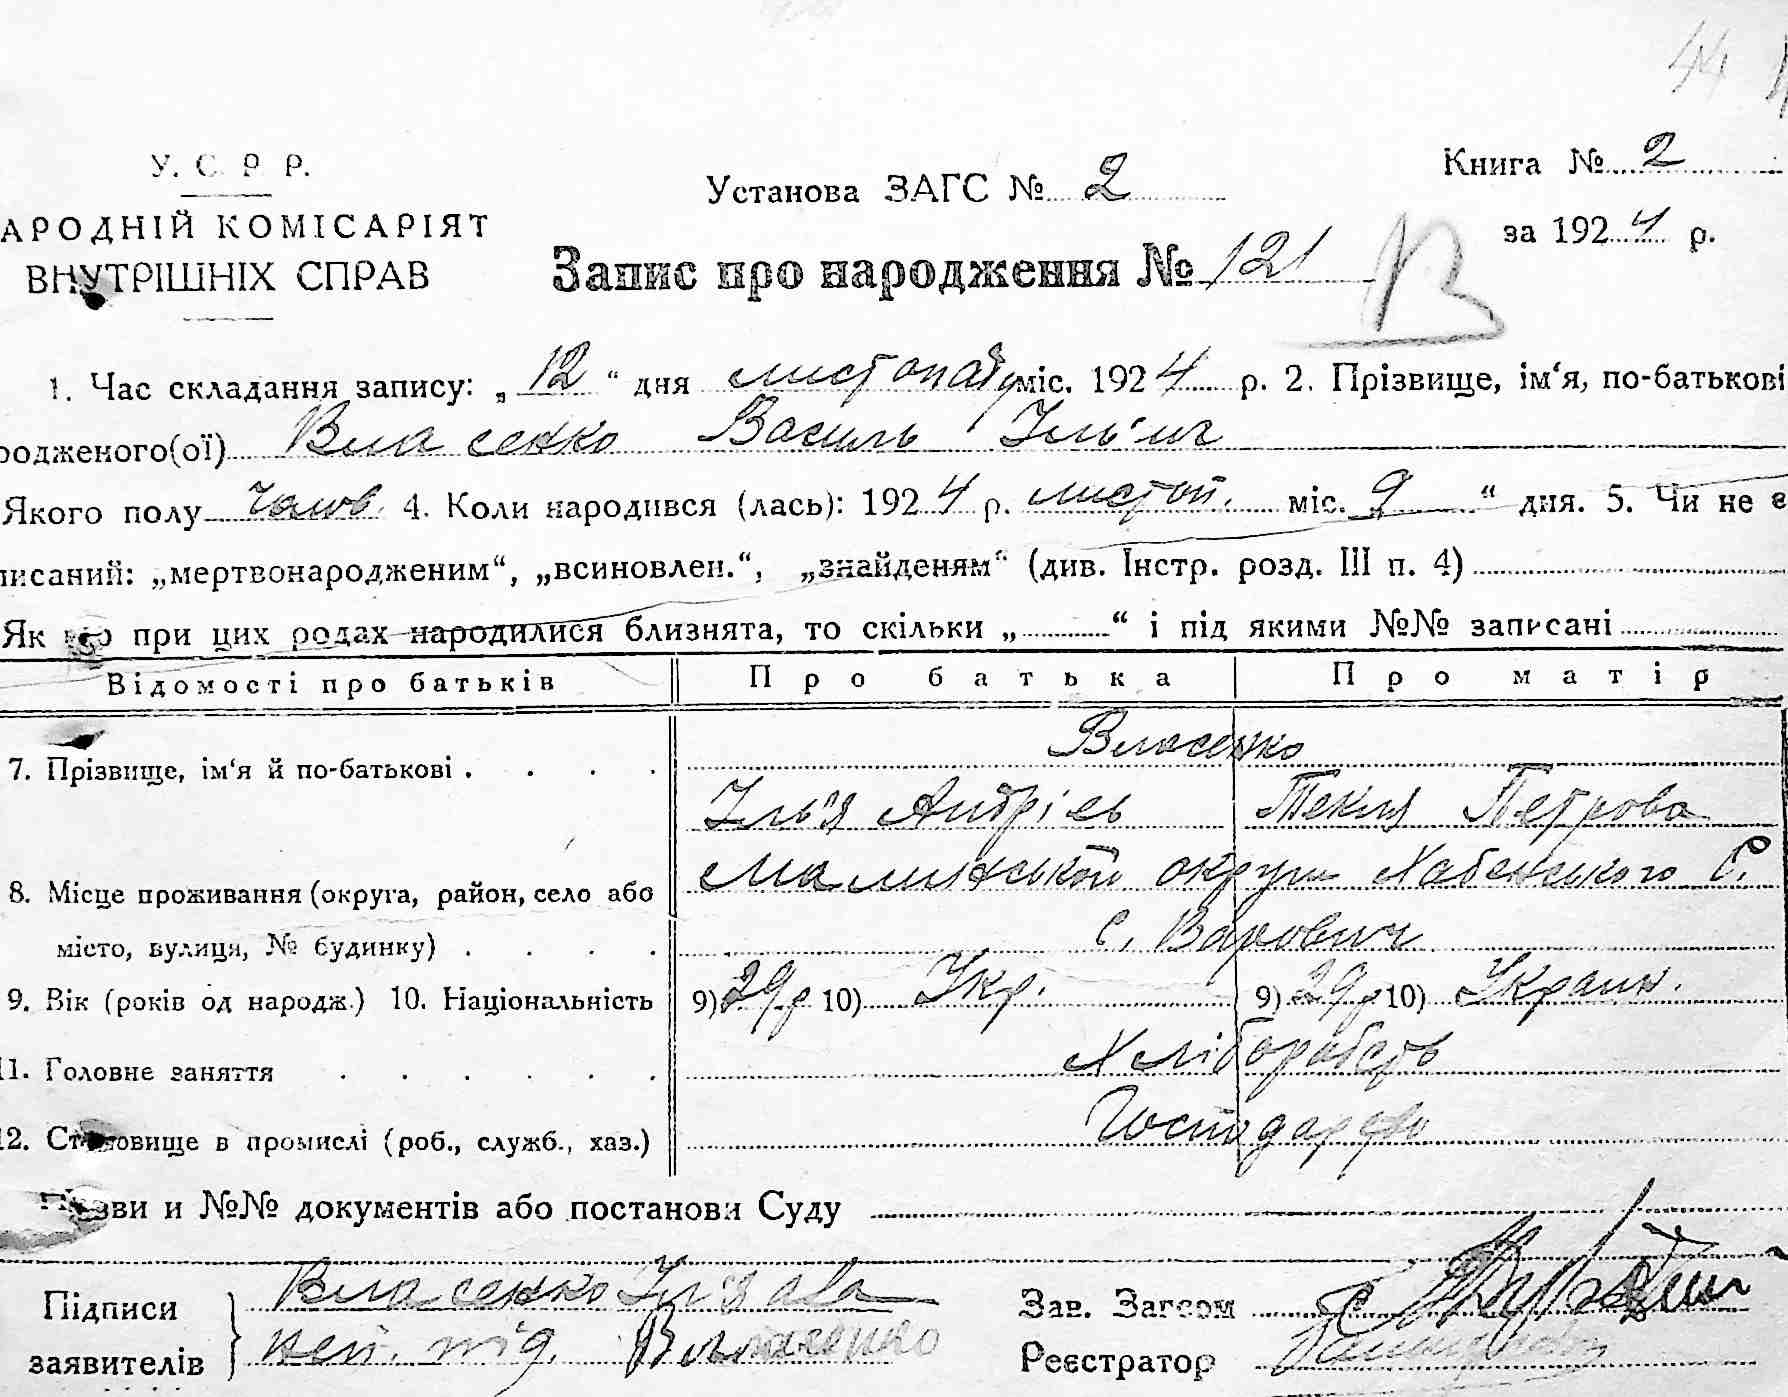 44
У. С. Р. Р.
АРОДНІЙ КОМІСАРІЯТ
ВНУТРІШНІХ СПРАВ
Установа ЗАГС № 2
Книга № 2
за 1924 р.
Запис про народження № 121
В
1. Час складання запису: „12“ дня листопаду міс. 1924 р. 2. Прізвище, ім‘я, по-батькові
родженого(ої) Власенко Василь Ільіч
Якого полу чолов. 4. Коли народився (лась): 1924 р. листоп. міс. 9 “ дня. 5. Чи не є
писаний: „мертвонародженим“, „всиновлен.“, „знайденям“ (див. Інстр. розд. III п. 4)
Як що при цих родах народилися близнята, то скільки „ “ і під якими №№ записані
Відомості про батьків Про батька Про матір
Власенко
7. Прізвище, ім‘я й по-батькові
Ілья Андріев Текля Петрова
Малинської округи Хабенського Р.
8. Місце проживання (округа, район, село або
місто, вулиця, № будинку) с. Варовичі
9. Вік (років од народж.) 10. Національність 9) 29 р 10) Укр. 9) 29 р 10) Україн.
11. Головне заняття Хлібороб
12. Становище в промислі (роб., служб., хаз.) Господар
Назви и №№ документів або постанови Суду
Підписи Власенко Ілья
заявителів неп. під. Власенко
Зав. Загсом
Реєстратор